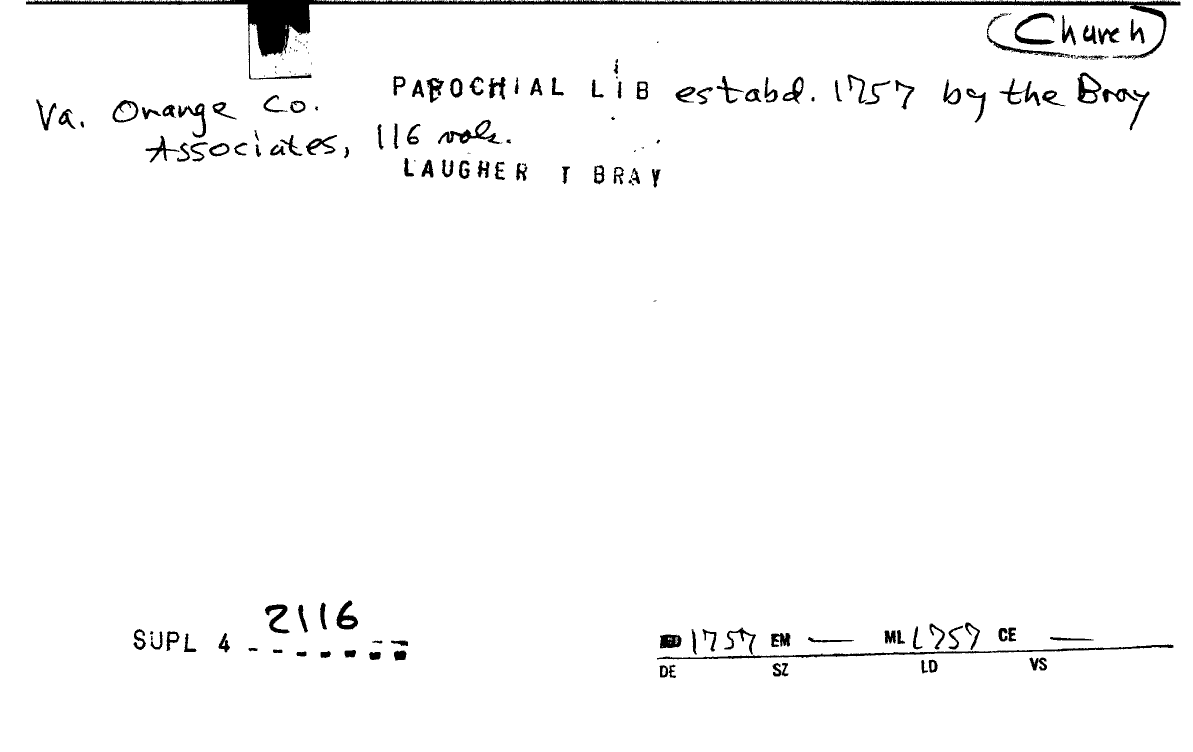 Church
Va. Orange Co. PAROCHIAL LIB estabd. 1757 by the Bray
Associates, 116 vols.
LAUGHER T BRAY
2116
SUPL 4 - - - - - - -
1757 EM — ML 1757 CE —
DE SZ LD VS